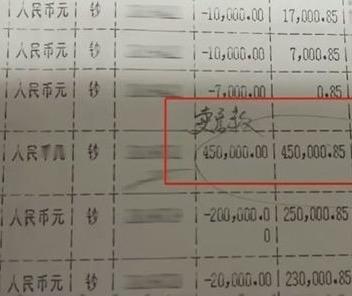 人民币元 钞 -10,000.00 17,000.85
人民币元 钞 -10,000.00 7,000.85
人民币元 钞 -7,000.00 0.85
人民币 钞 450,000.00 450,000.85
人民币元 钞 -200,000.0 250,000.85
0
人民币元 钞 -20,000.00 230,000.85